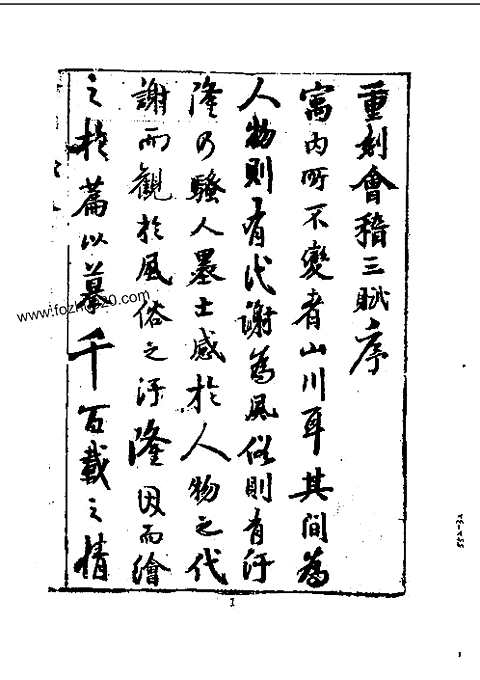 重刻會稽三賦序
寓內所不變者山川耳其間為
人物則有代謝為風俗則有汙
隆乃騷人墨士感於人物之代
謝而觀於風俗之汙隆因而繪
之於篇以摹千百載之情
www.fozhu920.com
1